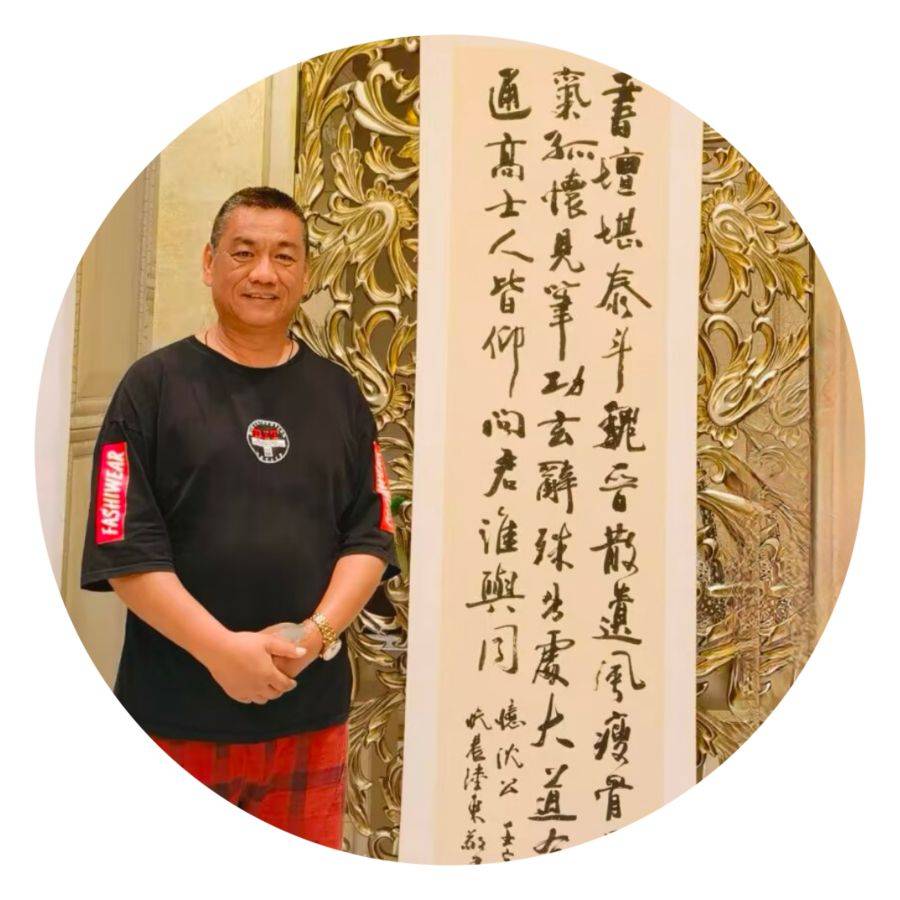 書壇堪泰斗魏晋散遺風瘦骨
氣孤懷見筆功玄辭殊出處大道
通高士人皆仰問君誰與同
憶沈公
陸東敬
FASHIWEAR